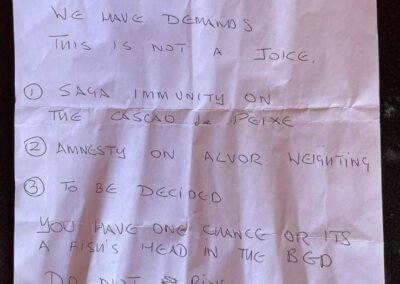 WE HAVE DEMANDS
THIS IS NOT A JOKE.
① SAGA IMMUNITY ON
THE CASCAO de PEIXE
② AMNESTY ON ALVOR WEIGHTING
③ TO BE DECIDED
YOU HAVE ONE CHANCE OR ITS
A FISH'S HEAD IN THE BED
DO NOT